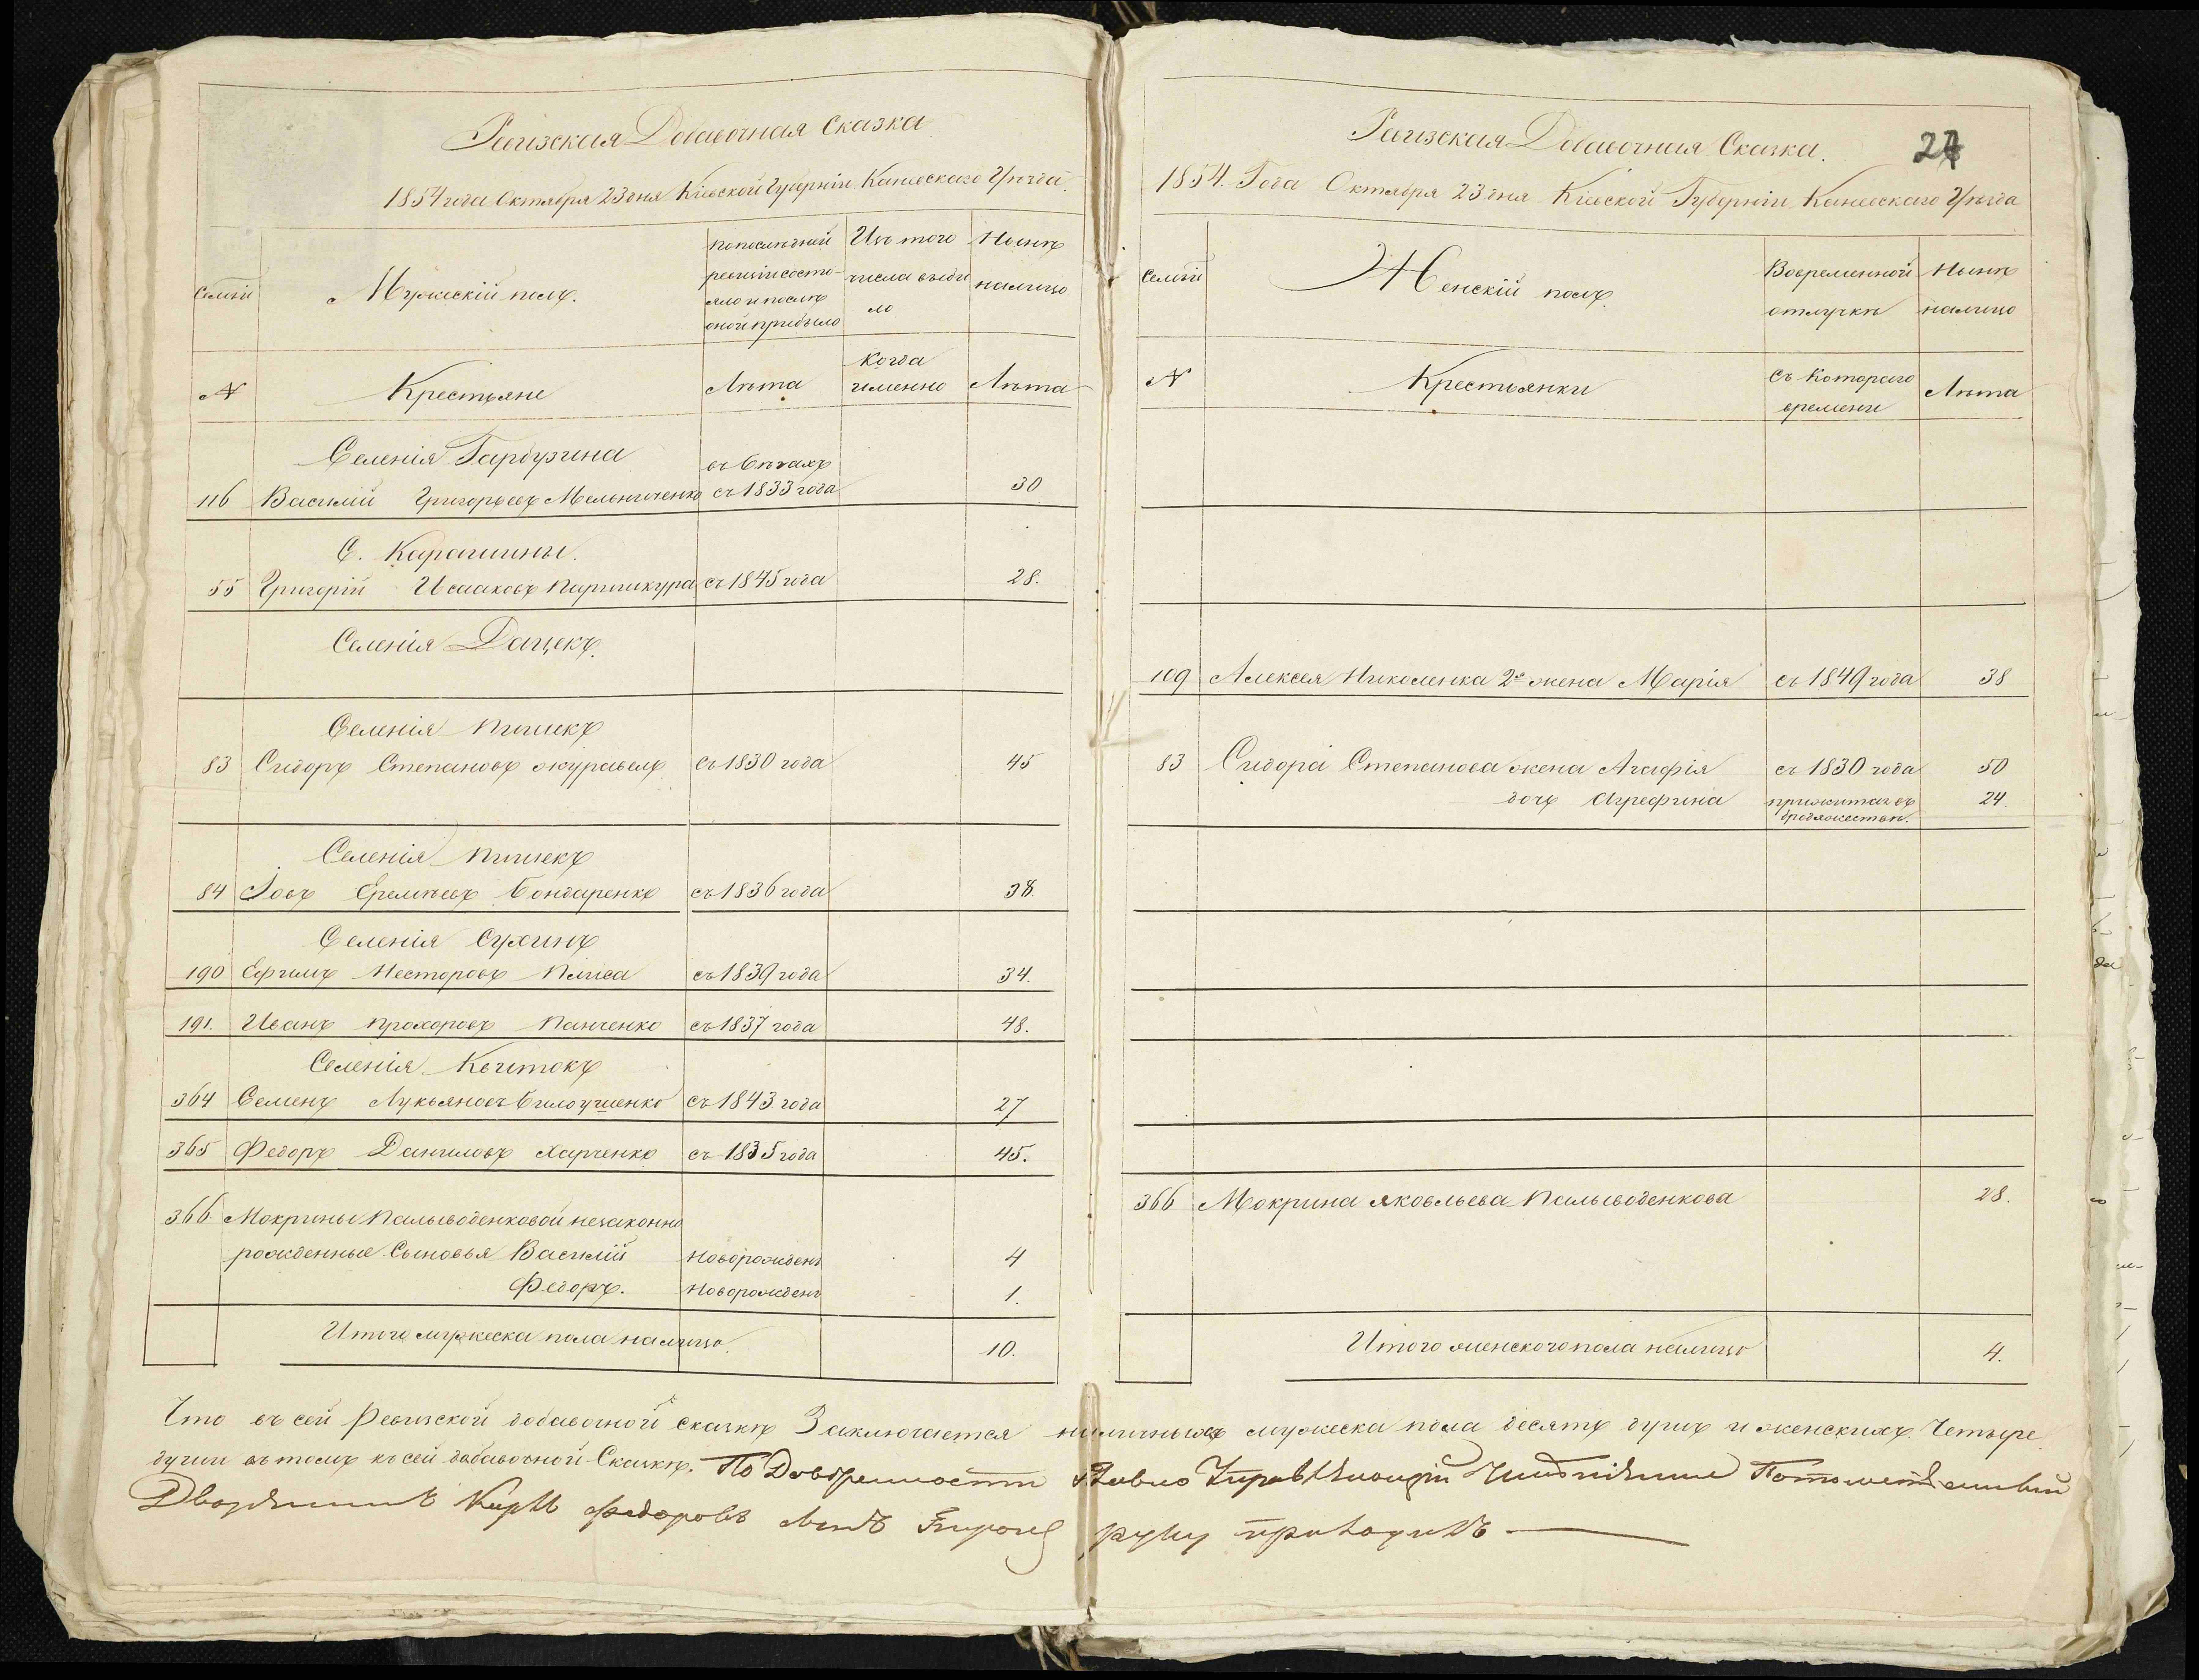 Ревизская Добавочная Сказка
1854 года Октября 23 дня Кіевской Губерніи Каневскаго Уѣзда.
Семьи
Мужескій полъ.
по послѣдней ревизіи состояло и послѣ оной прибыло
Изъ того числа выбыло
Нынѣ налицо
№
Крестьяне
Лѣта
Когда именно
Лѣта
Селенія Гарбузина
въ бѣгахъ
116 Василій Григорьевъ Мельниченко съ 1833 года 30
С. Карашины.
55 Григорій Исааковъ Паршикура съ 1845 года 28.
Селенія Дацекъ.
Селенія Пишекъ
83 Сидоръ Степановъ журавель съ 1830 года 45
Селенія Пишекъ
84 Іовъ Еремѣевъ Бондаренко съ 1836 года 38.
Селенія Сухинъ
190 Ефимъ Несторовъ съ 1839 года 34.
191. Иванъ Прохоровъ Панченко съ 1837 года 48.
Селенія Квитокъ
364 Семенъ Лукьяновъ съ 1843 года 27
365 Федоръ Даниловъ Харченко съ 1835 года 45.
366 Мокрины Пальоводенковой незаконно
рожденные Сыновья Василій новорожденъ 4
Федоръ. новорожденъ 1.
Итого мужеска пола налицо. 10.
Ревизская Добавочная Сказка.
24
1854. Года Октября 23 дня Кіевской Губерніи Каневскаго Уѣзда
Семьи
Женскій полъ.
Вовременной отлучкѣ
Нынѣ налицо
№
Крестьянки
Съ Котораго времени
Лѣта
109 Алексея Николенка 2я жена Марія съ 1849 года 38
83 Сидора Степанова жена Агафія съ 1830 года 50
дочь Агрефина прижитая въ бродяжествѣ. 24
366 Мокрина Яковльева Пальоводенкова 28.
Итого женского пола налицо 4.
Что въ сей Ревизской добавочной сказкѣ Заключается наличныхъ мужеска пола десять душъ и женскихъ Четыре
души въ томъ къ сей добавочной Сказкѣ. По Довѣренности
Дворянинъ Карлъ Федоровъ сынъ руку приложилъ